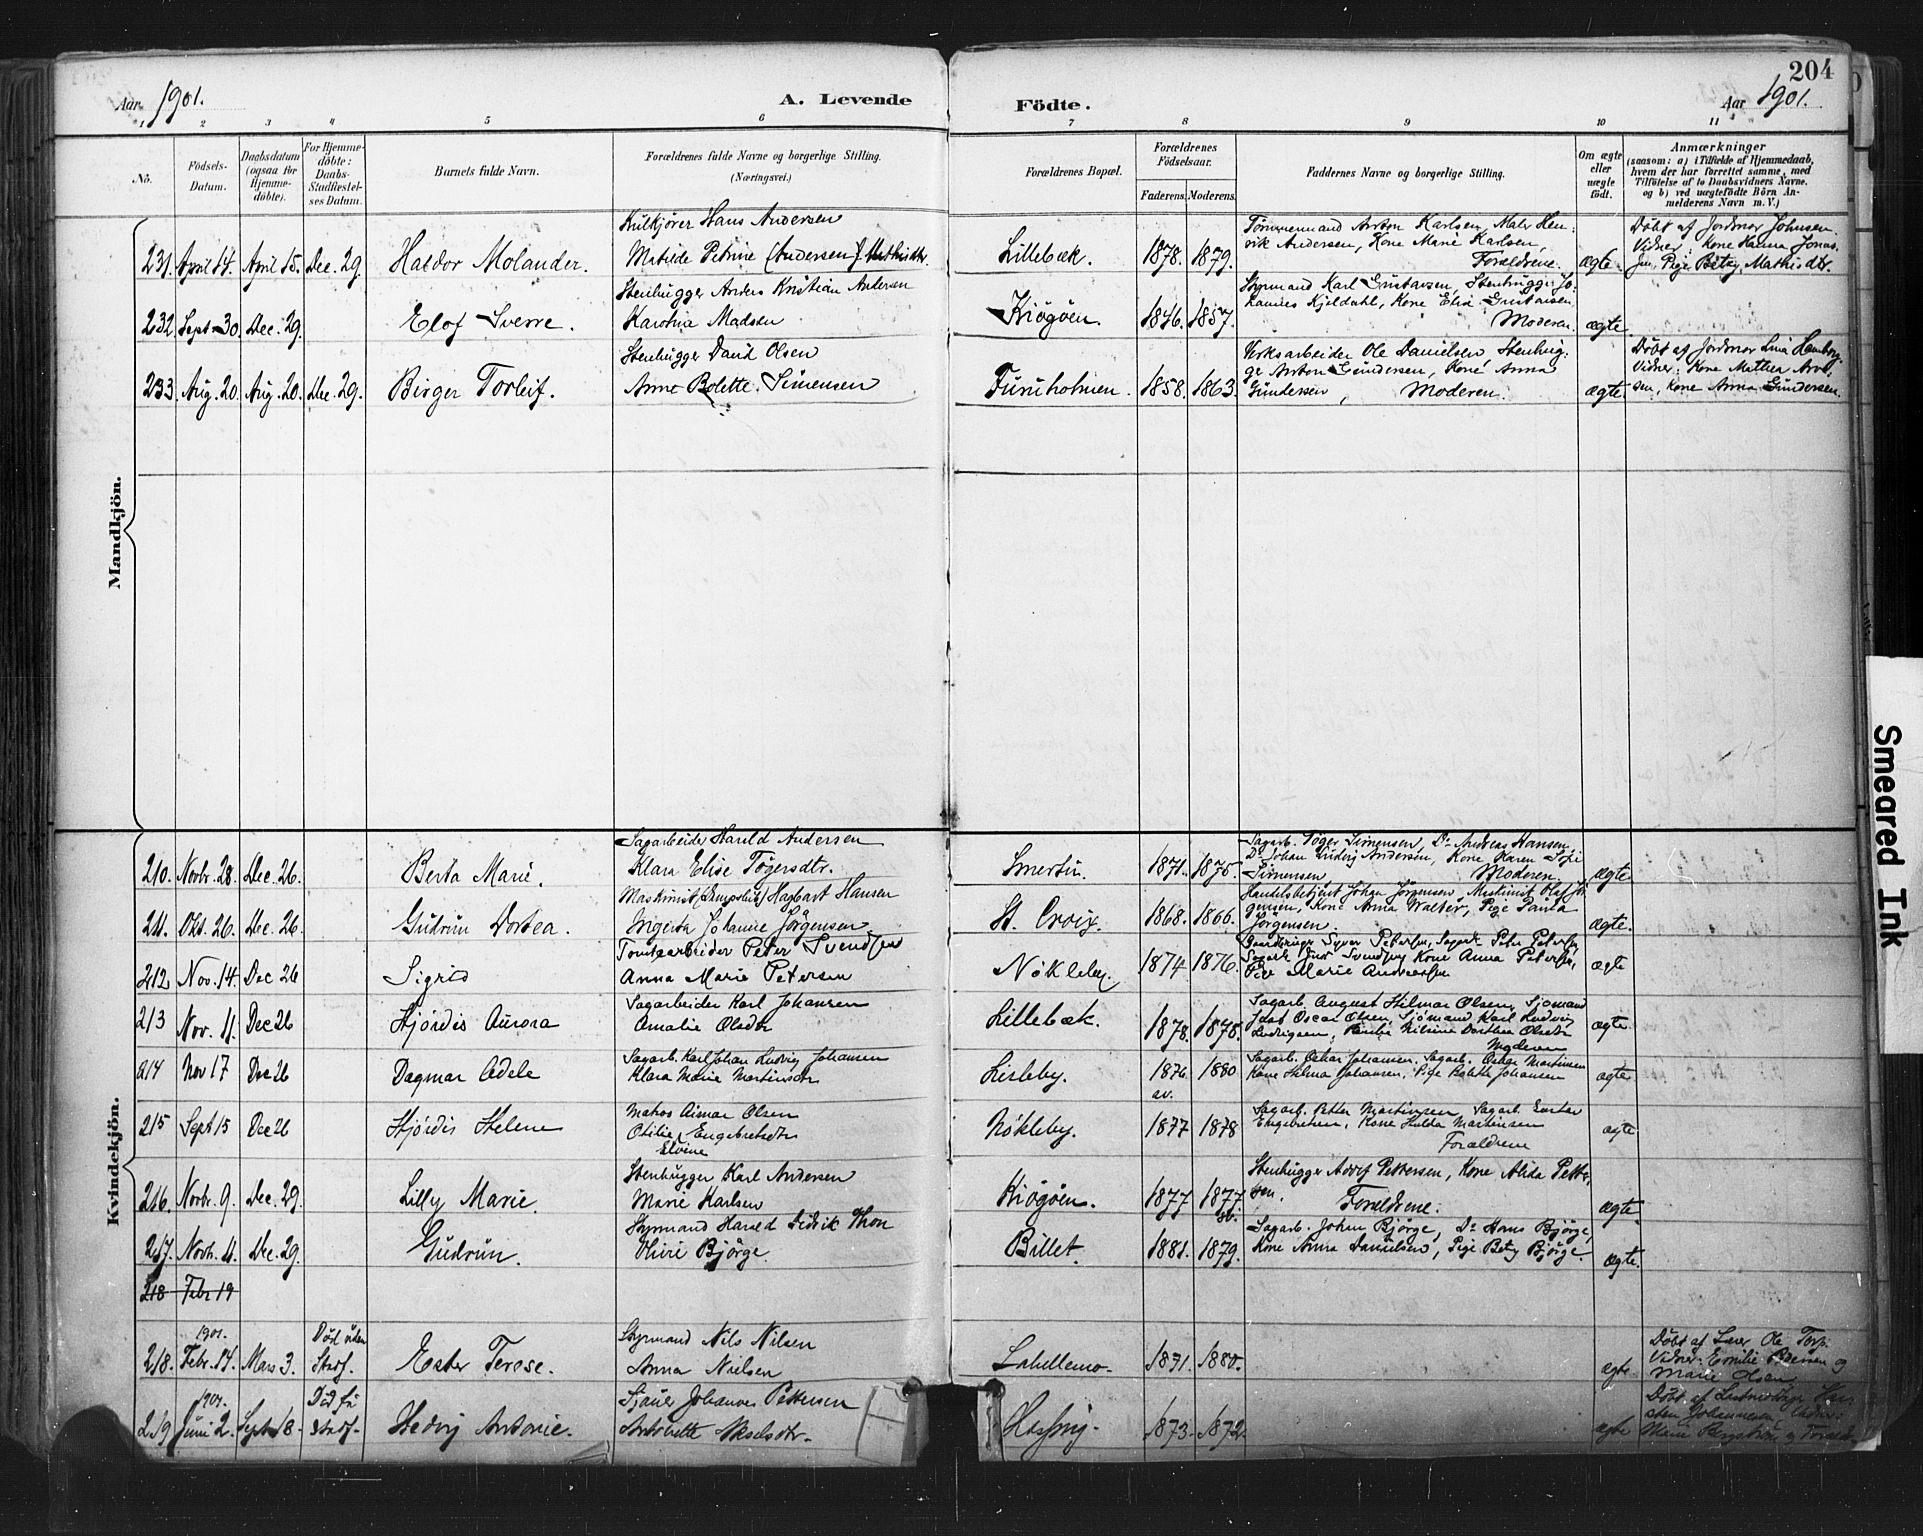 204
Aar 1901. A. Levende Födte. Aar 1901.
1 2 3 4 5 6 7 8 9 10 11
No. Födsels-Datum. Daabsdatum (ogsaa for Hjemme-döbte). For Hjemme-döbte: Daabs-Stadfæstel-ses Datum. Barnets fulde Navn. Forældrenes fulde Navne og borgerlige Stilling. (Næringsvei.) Forældrenes Bopæl. Forældrenes Födselsaar. Faderens. Moderens. Faddernes Navne og borgerlige Stilling. Om ægte eller uægte födt. Anmærkninger (saasom: a) i Tilfælde af Hjemmedaab, hvem der har forrettet samme, med Tilföielse af to Daabsvidners Navne, og b) ved uægtefödte Börn An-melderens Navn m. V.)
Mandkjön.
Kulkjører Hans Andersen Tømmermand Anton Karlsen, Maler Hen- Døbt af Jordmor Johnsen.
231. April 14. April 15. Dec. 29. Haldor Molander. Matilde Petrine (Andersen) Lillebæk. 1878. 1879. rik Andersen, Kone Marie Karlsen, Forældrene. ægte. Vidner: Kone Hanna Jonas-sen, Pige Betzy Mathisdtr.
Stenhugger Anders Kristian Andersen Styrmand Karl Gustavsen, Stenhugger Jo-
232. Sept. 30. Dec. 29. Elof Sverre. Karoline Madsen Kiøgøen. 1846. 1857. hannes Kjeldahl, Kone Elise Gustavsen, Moderen. ægte
Stenhugger David Olsen Verksarbeider Ole Danielsen, Stenhug- Døbt af Jordmor Lina Hamborg.
233. Aug. 20. Aug. 20. Dec. 29. Birger Torleif. Anne Bolette Simensen Furuholmen. 1858. 1863. ger Anton Gundersen, Kone Anna Gundersen, Moderen. ægte. Vidner: Kone Mathea Arve-sen, Kone Anna Gundersen.
Kvindekjön.
Sagarbeider Harald Andersen Sagarb. Tøger Simensen, Do Andreas Hansen,
210. Novbr. 28. Dec. 26. Berta Marie. Klara Elise Tøgersdtr. Smertu. 1871. 1875. Do Johan Ludvig Andersen, Kone Karen Sofi Simensen Moderen. ægte.
Maskinist Hagbart Hansen Handelsbetjent Johan Jørgensen, Maskinist Olaf Jør-
211. Okt. 26. Dec. 26. Gudrun Dortea. Ingerta Johanne Jørgensen St. Croix. 1868. 1866. gensen, Kone Anna Walter, Pige Paula Jørgensen. ægte.
Tomtearbeider Peter Svendsen Gaardbruger Syver Petersen, Sagarb. Peter Petersen,
212 Nov. 14. Dec 26 Sigrid Anna Marie Petersen Nøkleby. 1874 1876. Sagarb. Svendsen, Kone Anna Petersen, Pige Marie Andreasen ægte
Sagarbeider Karl Johansen Sagarb. August Hilmar Olsen, Sjømand
213 Nov. 11. Dec 26 Hjördis Aurora Amalie Olsdtr Lillebæk. 1878. 1878. Oscar Olsen, Sjømand Karl Ludvig Ludvigsen, Nilsine Dorthea Olsdtr Moderen ægte
Sagarb. Karl Johan Ludvig Johansen Sagarb. Oskar Johansen, Sagarb. Oskar Martinsen
214 Nov 17 Dec 26 Dagmar Adele Klara Marie Martinsdtr Lisleby. 1876 1880 Kone Hilma Johansen, Pige Bolette Johansen ægte.
Matros Aimar Olsen Sagarb. Petter Martinsen, Sagarb. Gustav
215 Sept 15 Dec 26 Hjördis Helene Otilie Elvine Engebretsdtr Nökleby. 1877 1878 Engebretsen, Kone Hulda Martinsen Forældrene ægte
Stenhugger Karl Andersen Stenhugger Adolf Pettersen, Kone Alida Petter-
216. Novbr. 9. Dec. 29. Lilly Marie. Marie Karlsen Kiøgøen. 1877 1877. sen, Forældrene. ægte.
Styrmand Harald Didrik Thon Sagarb. Johan Bjørge, Do Hans Bjørge,
217. Novbr. 11. Dec. 29. Gudrun. Olivie Bjørge Billet. 1881. 1879. Kone Anna Danielsen, Pige Betzy Bjørge ægte.
218 Febr 19
1901. Død uden Styrmand Nils Nilsen Døbt af Lærer Ole Torp.
218. Febr. 14. Mars 3. Stadf. Ester Terese. Anna Nielsen Labellemo 1871. 1880. ægte Vidner: Emilie Pedersen og Marie Olsen
1901. Død før Sjauer Johannes Pettersen Døbt af
219 Juni 2. Sept 8. Stadf. Hedvig Antonie. Antonette Akselsdtr. Hassing. 1873. 1872. ægte Johannesen,
Smeared Ink